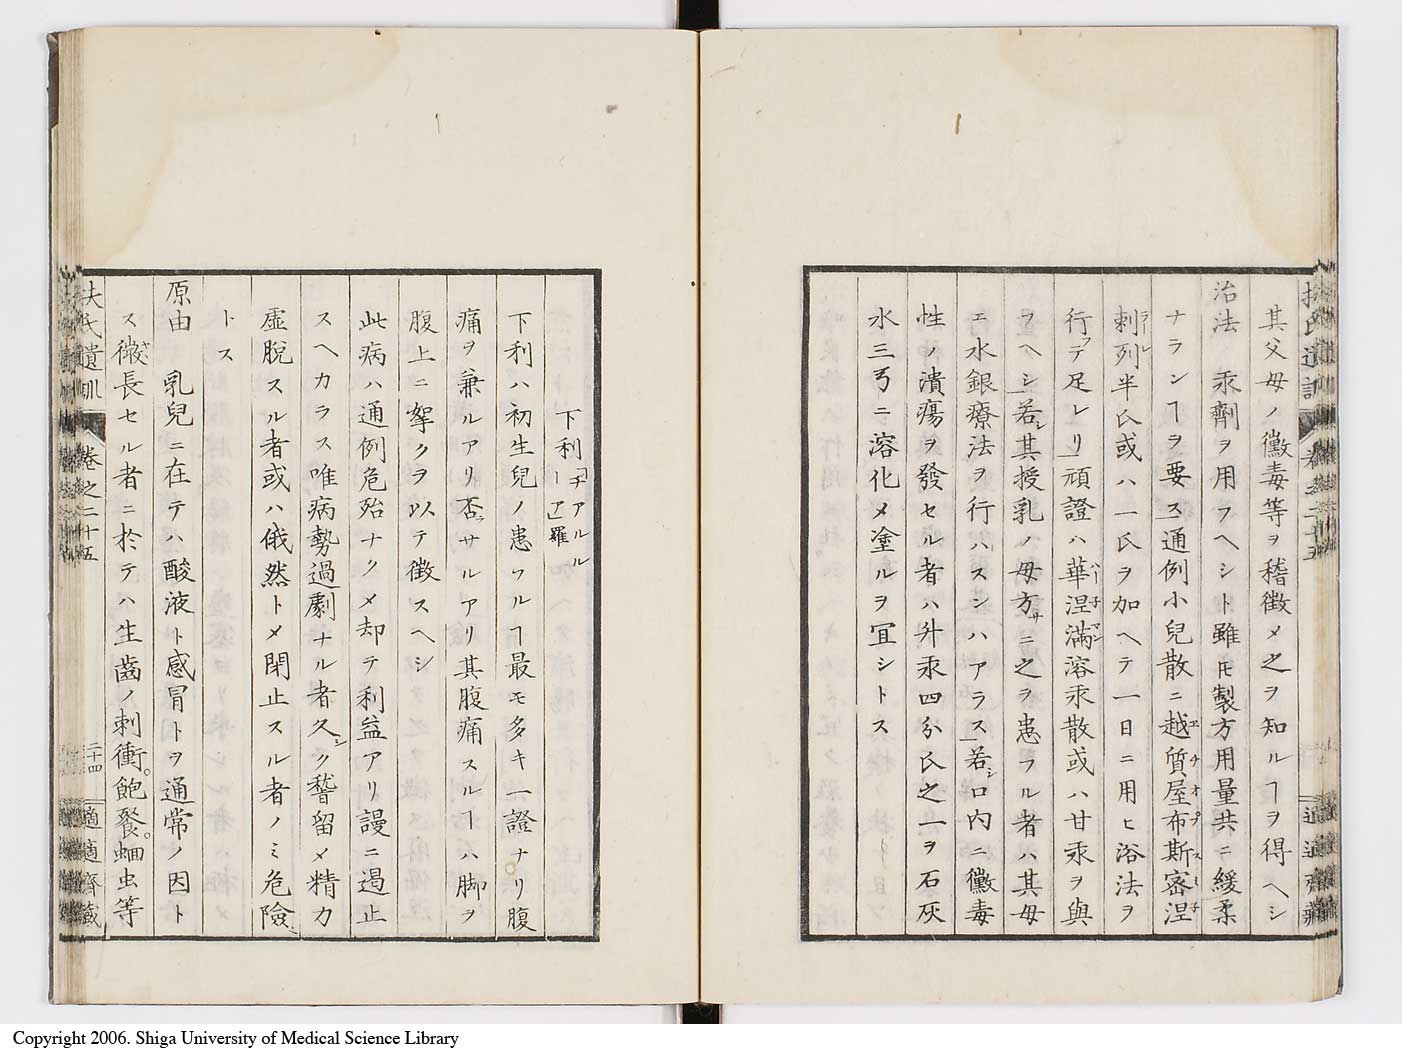 其父母ノ黴毒等ヲ稽徴〆之ヲ知ルヿヲ得ヘシ
治法 汞劑ヲ用フヘシト雖𪜈製方用量共ニ緩柔
ナランヿヲ要ス通例小兒散ニ越質屋布斯密涅
エチオプスミ子
刺列半氏或ハ一氏ヲ加ヘテ一日ニ用ヒ浴法ヲ
ラーレ
行テ足レリ頑證ハ華涅滿溶汞散或ハ甘汞ヲ與
フヘシ若其授乳ノ母方ニ之ヲ患フル者ハ其母
ニ水銀療法ヲ行ハスンハアラス若口内ニ黴毒
性ノ潰瘍ヲ發セル者ハ升汞四分氏之一ヲ石灰
水三弓ニ溶化〆塗ルヲ宜シトス
扶氏遺訓 卷之二十五
適適齋藏
下利
下利ハ初生兒ノ患フルヿ最モ多キ一證ナリ腹
痛ヲ兼ルアリ否サルアリ其腹痛スルヿハ脚ヲ
腹上ニ攣クヲ以テ徴スヘシ
此病ハ通例危殆ナク〆却テ利益アリ謾ニ遏止
スヘカラス唯病勢過劇ナル者久ク稽留〆精力
虚脱スル者或ハ俄然ト〆閉止スル者ノミ危險
トス
原由 乳兒ニ在テハ酸液ト感冒トヲ通常ノ因ト
ス微長セル者ニ於テハ生齒ノ刺衝。飽餐。蛔虫等
扶氏遺訓 卷之二十五
二十四
適適齋藏
Copyright 2006. Shiga University of Medical Science Library